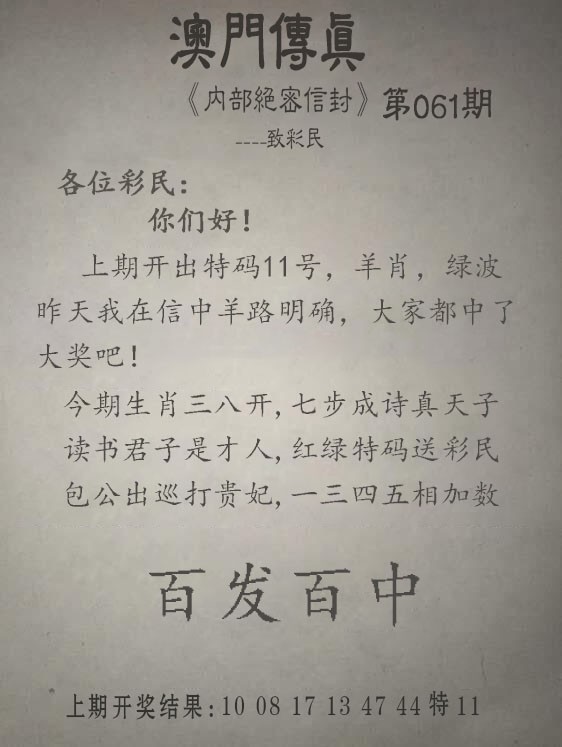 澳門傳眞
《内部絕密信封》第061期
----致彩民
各位彩民:
你们好!
上期开出特码11号,羊肖,绿波
昨天我在信中羊路明确,大家都中了
大奖吧!
今期生肖三八开,七步成诗真天子
读书君子是才人,红绿特码送彩民
包公出巡打贵妃,一三四五相加数
百发百中
上期开奖结果:10 08 17 13 47 44 特 11